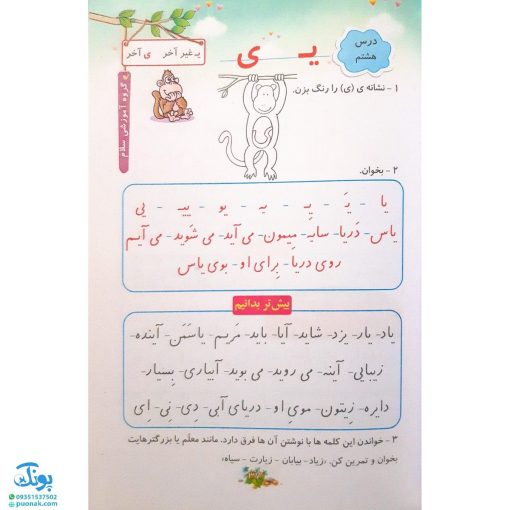 درس هشتم
یـ ی
یـ غیر آخر ی آخر
گروه آموزشی سلام
۱ - نشانه ی (ی) را رنگ بزن.
۲ - بخوان.
یا - یَـ - یِـ - یه - یو - ییـ - یی
یاس - دَریا - سایه - مِیمون - می آید - می شوید - می آیم
روی دریا - بِرای او - بوی یاس
بیش تر بدانیم
یاد - یار - یزد - شاید - آیا - باید - مَریم - یاسَمَن - آینده -
زیبایی - آینه - می روید - می بوید - آبیاری - بِسیار -
دایره - زِیتون - موی او - دریای آبی - دِی - نِی - اِی
۳ - خواندن این کلمه ها با نوشتن آن ها فرق دارد. مانند معلّم یا بزرگترهایت
بخوان و تمرین کن. «زیاد - بیابان - زیارت - سیاه»
پونک
09351537502
puonak.com